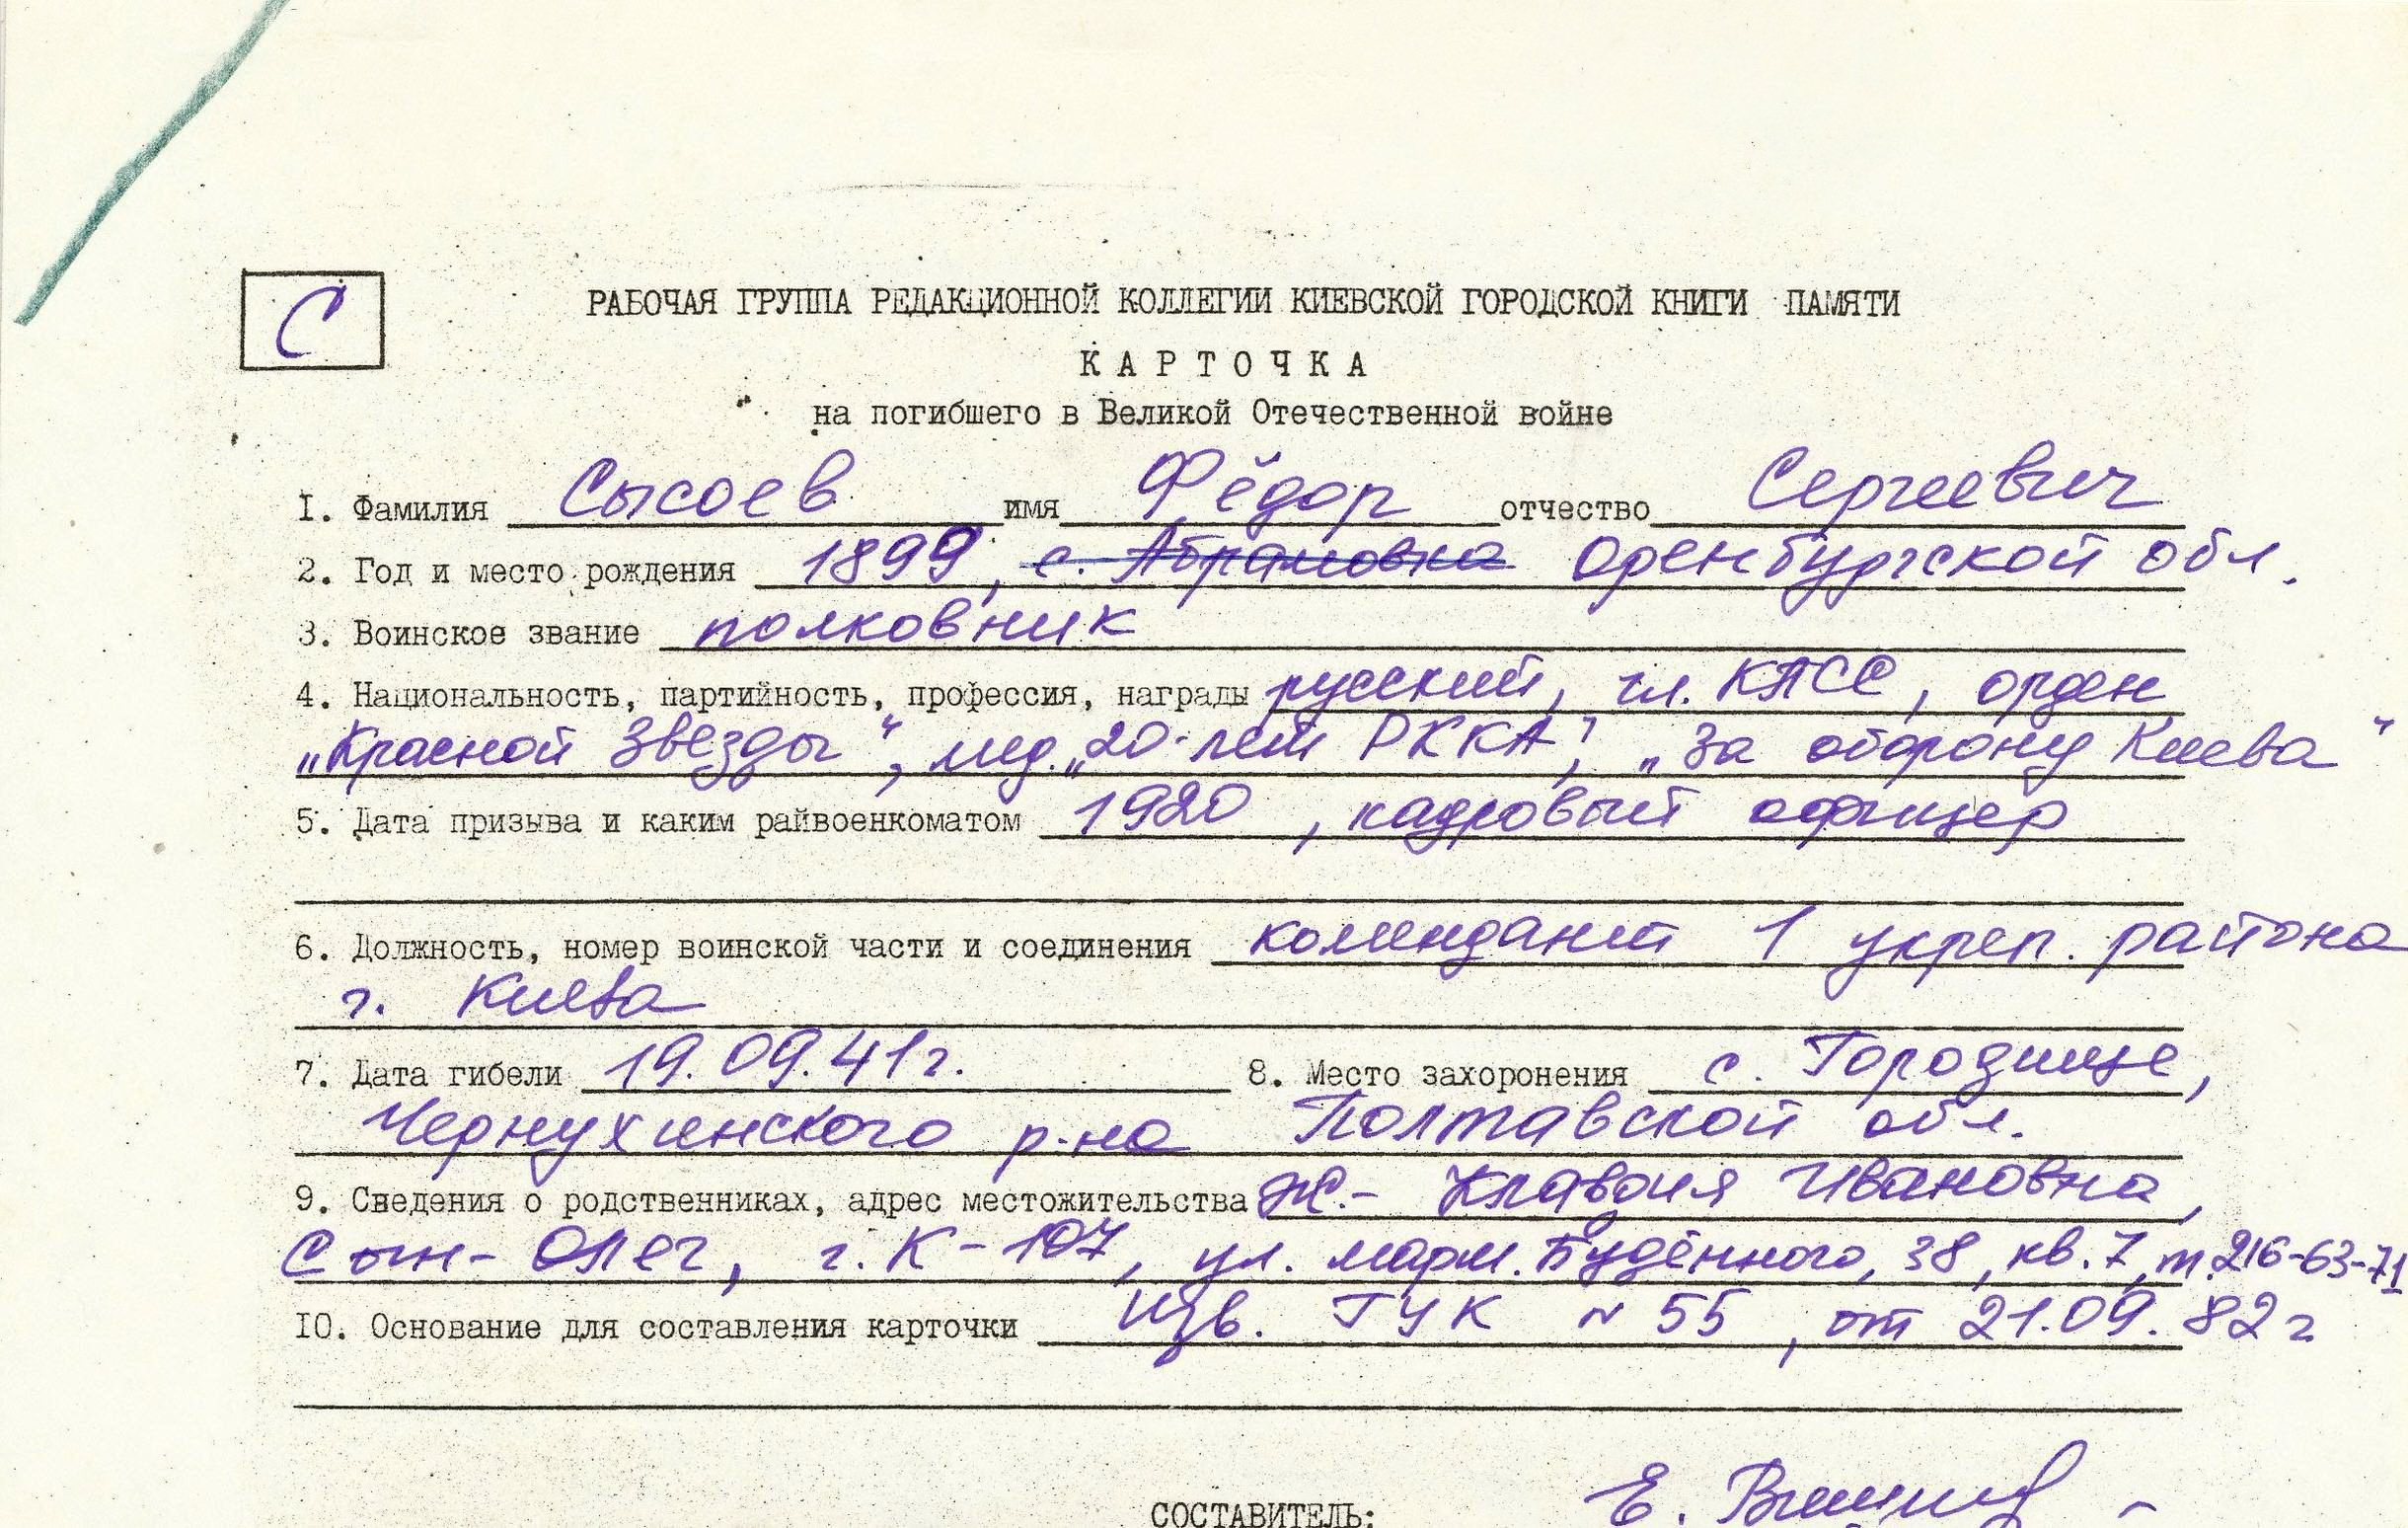 С
РАБОЧАЯ ГРУППА РЕДАКЦИОННОЙ КОЛЛЕГИИ КИЕВСКОЙ ГОРОДСКОЙ КНИГИ ПАМЯТИ
КАРТОЧКА
на погибшего в Великой Отечественной войне
I. Фамилия Сысоев имя Фёдор отчество Сергеевич
2. Год и место рождения 1899, с. Абрамовка Оренбургской обл.
3. Воинское звание полковник
4. Национальность, партийность, профессия, награды русский, чл. КПСС, орден
„Красной Звезды“, мед. „20-лет РККА“, „За оборону Киева“
5. Дата призыва и каким райвоенкоматом 1920, кадровый офицер
6. Должность, номер воинской части и соединения комендант 1 укреп. района
г. Киева
7. Дата гибели 19.09.41г. 8. Место захоронения с. Городище,
Чернухинского р-на Полтавской обл.
9. Сведения о родственниках, адрес местожительства Ж.- Клавдия Ивановна,
Сын- Олег, г. К-107, ул. марш. Будённого, 38, кв. 7, т. 216-63-71
IO. Основание для составления карточки Изв. ГУК № 55, от 21.09.82г
СОСТАВИТЕЛЬ: Е.